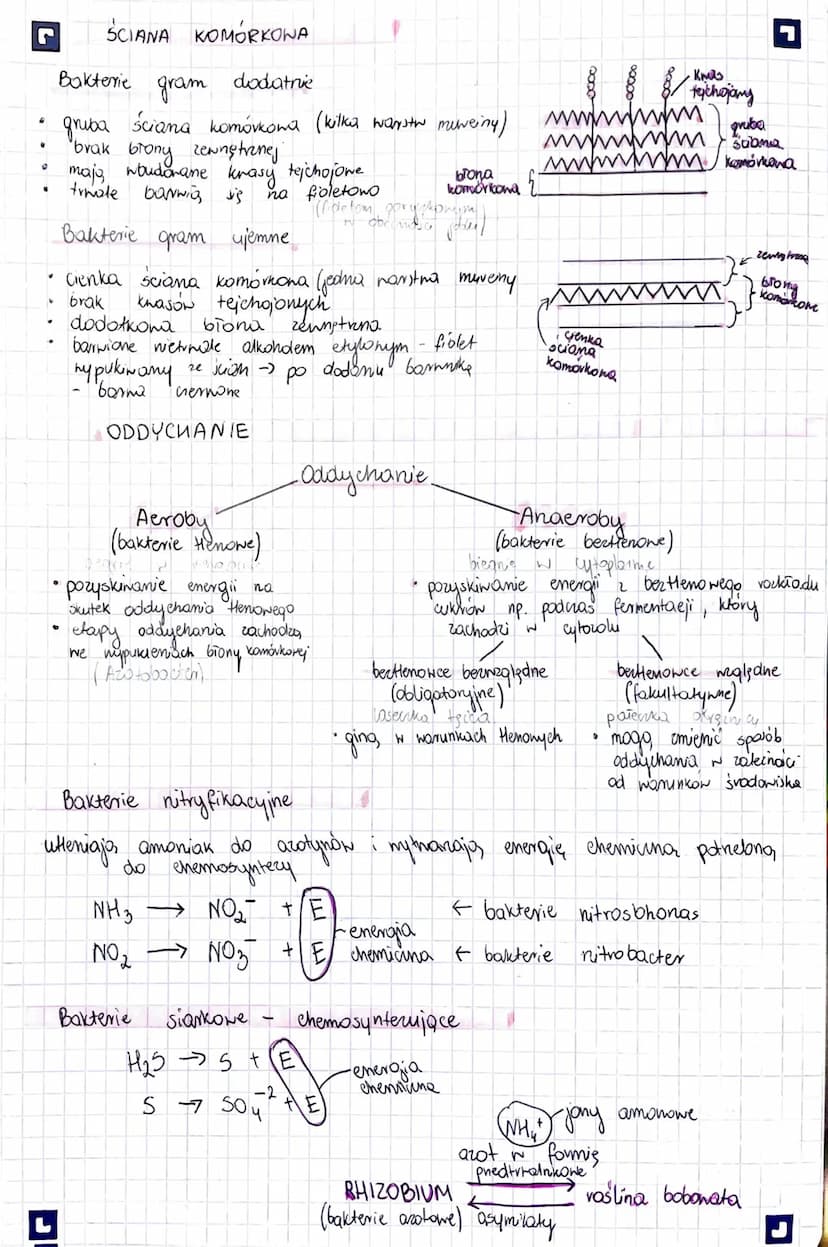 ŚCIANA KOMÓRKOWA
Bakterie gram dodatnie
• gruba ściana komórkowa (kilka warstw mureiny)
• brak błony zewnętrznej
• mają wbudowane kwasy tejchojowe
• trwale barwią się na fioletowo
(fioletem goryczkowym
w obecności jodu)
kwas
tejchojowy
gruba
ściana
komórkowa
błona
komórkowa
Bakterie gram ujemne
• cienka ściana komórkowa (jedna warstwa mureiny
• brak kwasów tejchojowych
• dodatkowa błona zewnętrzna
• barwione nietrwale alkoholem etylowym - fiolet
wypukiwany ze ścian → po dodaniu barwnika
- barwa czerwone
zewnętrzna
błony
komórkowe
cienka
ściana
komórkowa
ODDYCHANIE
Oddychanie
Aeroby
(bakterie tlenowe)
• pozyskiwanie energii na
skutek oddychania tlenowego
• etapy oddychania zachodzą
we wypukleniach błony komórkowej
Anaeroby
(bakterie beztlenowe)
biegnie w cytoplazmie
• pozyskiwanie energii z beztlenowego rozkładu
cukrów np. podczas fermentacji, który
zachodzi w cytozolu
beztlenowce bezwzględne
(obligatoryjne)
laseczka tężca
• giną w warunkach tlenowych
beztlenowce względne
(fakultatywne)
pałeczka okrężnicy
• mogą zmienić sposób
oddychania w zależności
od warunków środowiska
Bakterie nitryfikacyjne
utleniają amoniak do azotynów i wytwarzają energię chemiczną potrzebną
do chemosyntezy
NH₃ → NO₂⁻ + E ← bakterie nitrosbhonas
NO₂ → NO₃⁻ + E ← bakterie nitrobacter
energia
chemiczna
Bakterie siarkowe - chemosyntezujące
H₂S → S + E
S → SO₄⁻² + E
energia
chemiczna
NH₄⁺ jony amonowe
azot w formie
przedtrawinkowe
RHIZOBIUM roślina bobowata
(bakterie azotowe) asymilaty